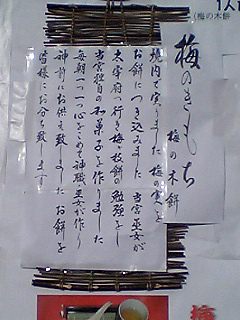 1人
(梅の木餅
梅のきもち
梅の木餅
境内で実りました梅の実を
お餅につき込みました 当宮巫女が
太宰府へ行き梅ヶ枝餅の勉強をし
当宮独自の和菓子を作りました
毎朝一つ一つ心をこめて神職・巫女が作り
神前にお供え致しましたお餅を
皆様にお分ち致します